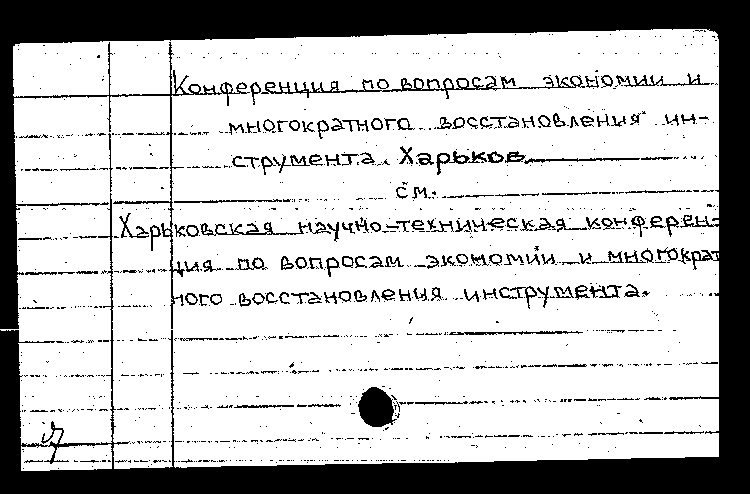 Конференция по вопросам экономии и
многократного восстановления ин-
струмента. Харьков.
см.
Харьковская научно-техническая конферен-
ция по вопросам экономии и многократ
ного восстановления инструмента.